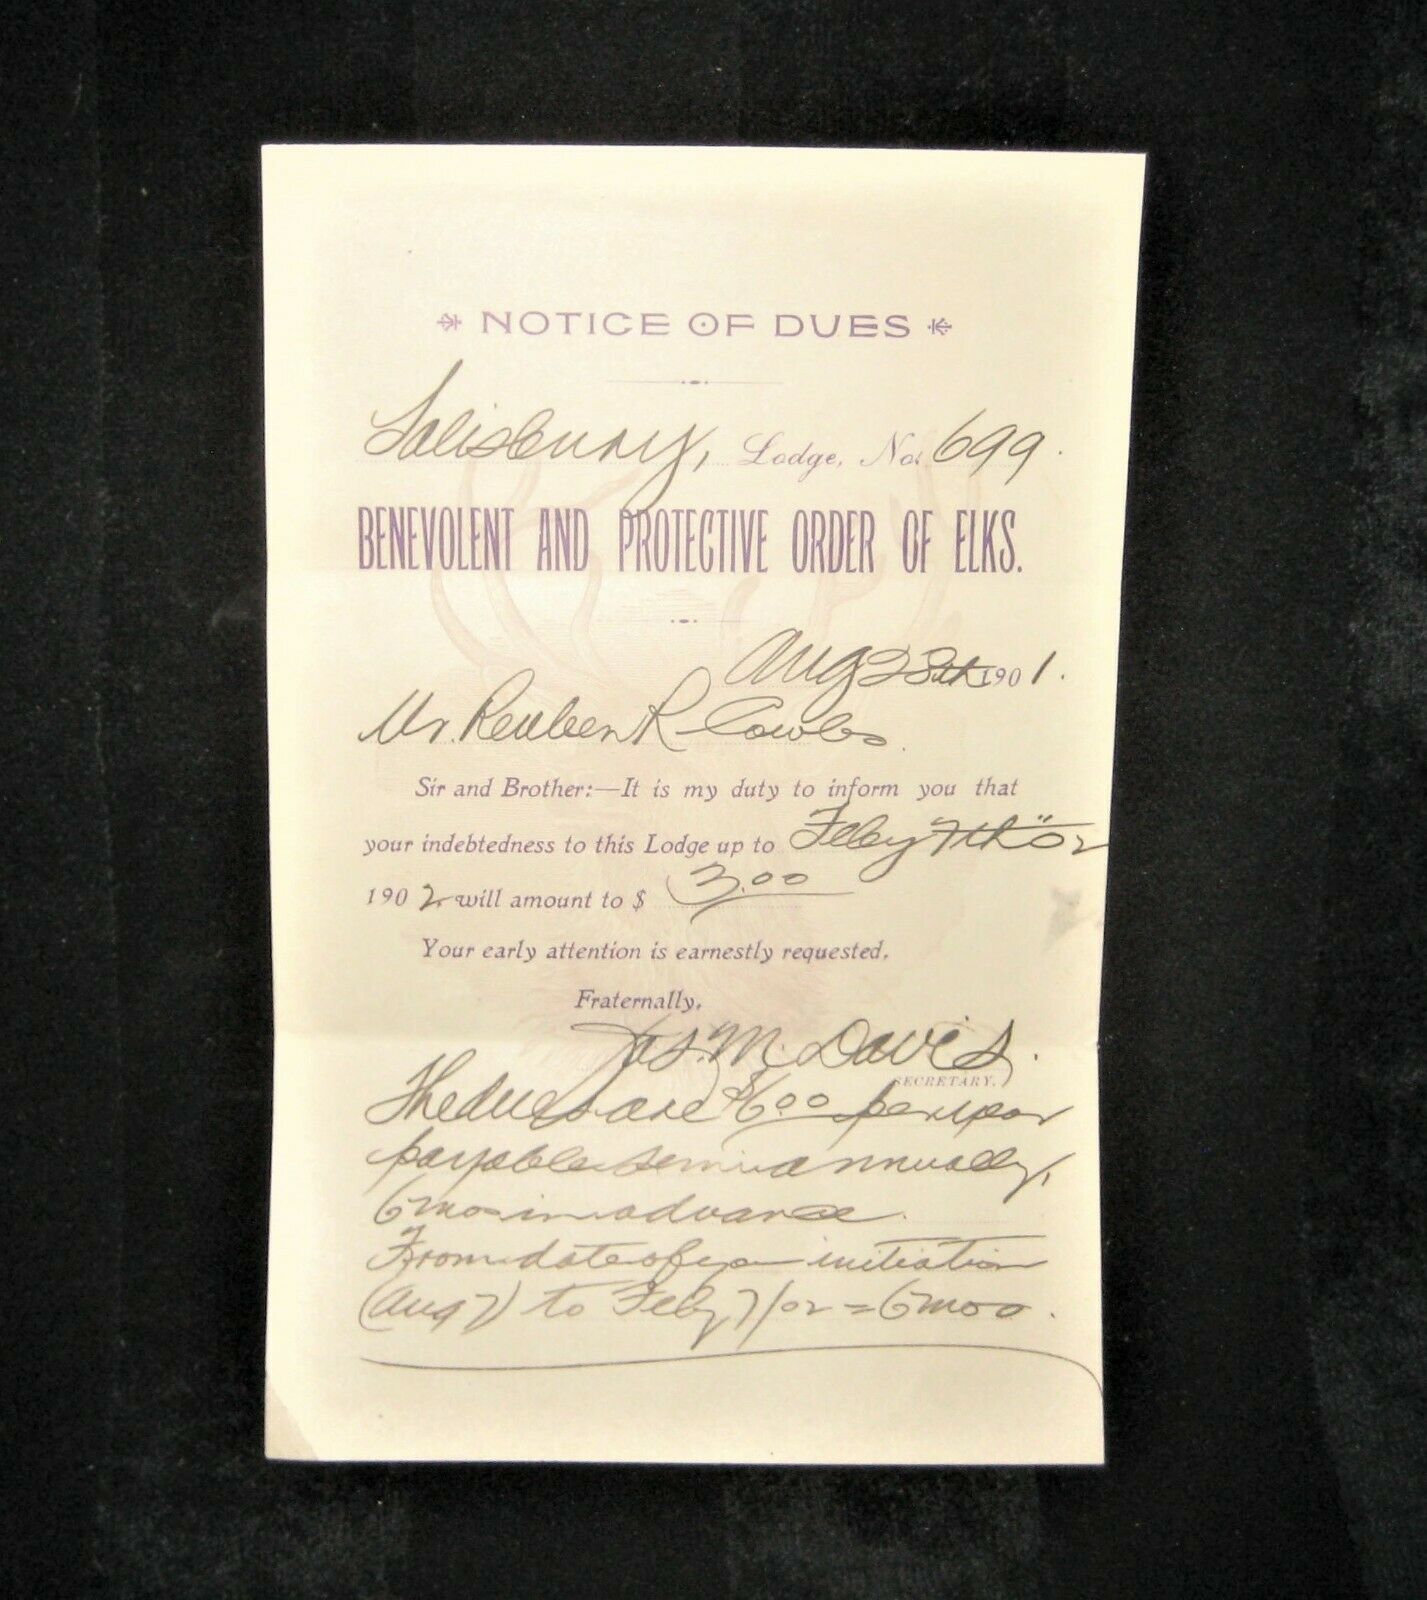 NOTICE OF DUES
Salisbury, Lodge, No. 699.
BENEVOLENT AND PROTECTIVE ORDER OF ELKS.
Aug 28th 1901.
Mr. Reuben R Cowles.
Sir and Brother:—It is my duty to inform you that
your indebtedness to this Lodge up to Feby 7th "02
1902 will amount to $ 3.00
Your early attention is earnestly requested.
Fraternally,
Jas. M. Davis.
SECRETARY.
The dues are $6.00 per year
payable semi annually,
6 mos in advance.
From date of your initiation
(Aug 7) to Feby 7/02 = 6 mos.